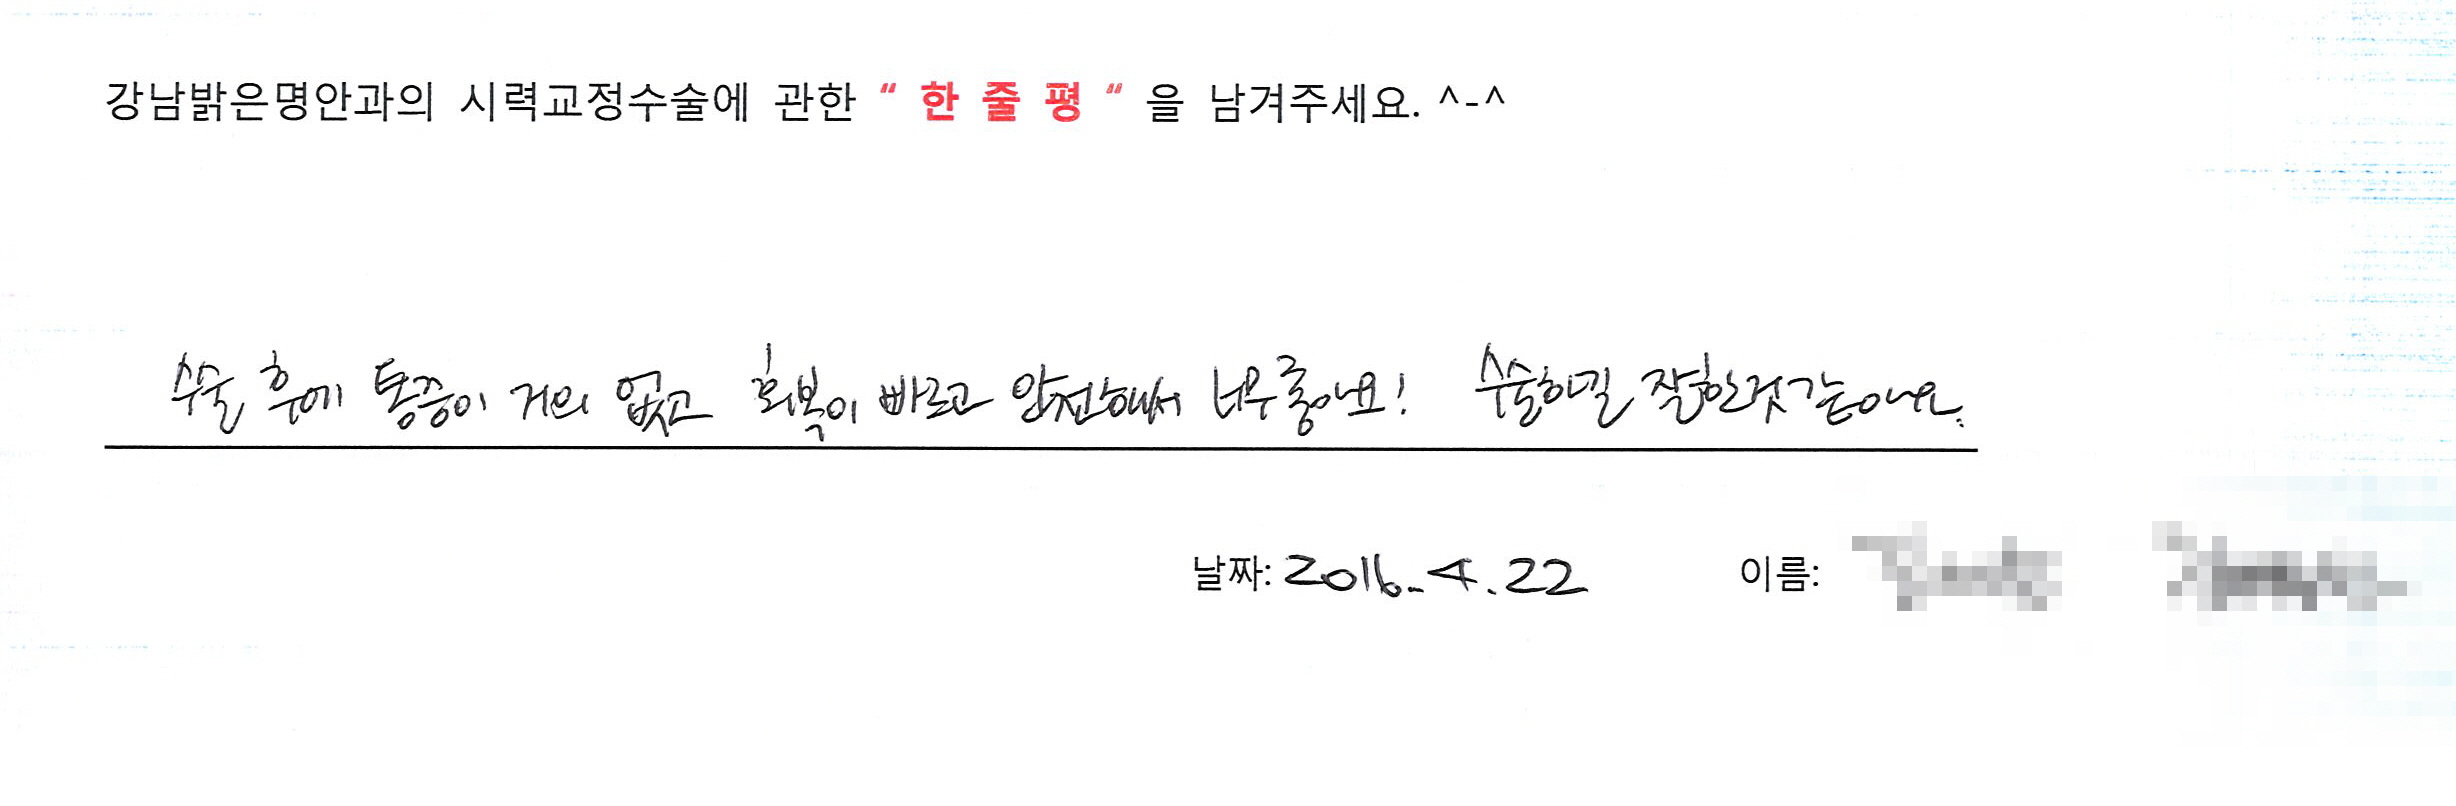 강남밝은명안과의 시력교정수술에 관한 “ 한 줄 평 “ 을 남겨주세요. ^-^
수술 후에 통증이 거의 없고 회복이 빠르고 안전해서 너무 좋아요! 수술하길 잘한것 같아요.
날짜: 2016. 4. 22 이름: